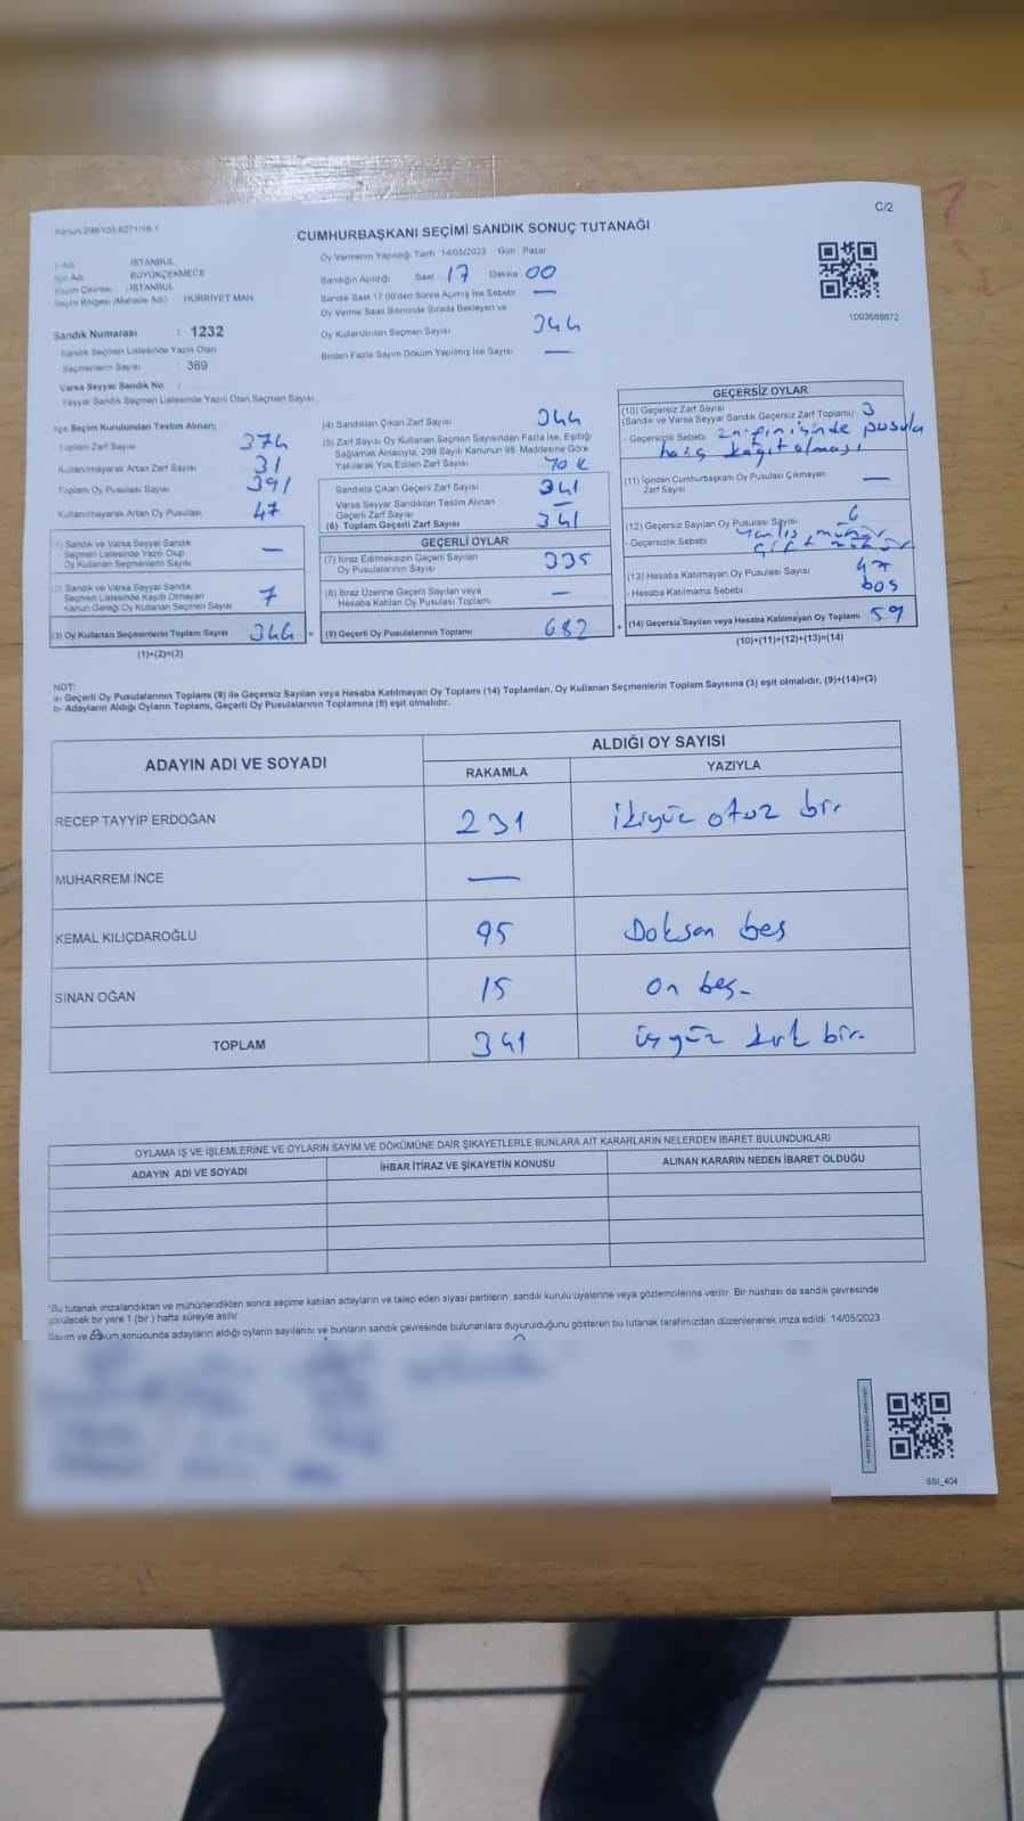 C/2
CUMHURBAŞKANI SEÇİMİ SANDIK SONUÇ TUTANAĞI
İSTANBUL
BÜYÜKÇEKMECE
İSTANBUL
HÜRRİYET MAH.
Sandık Numarası : 1232
Sandık Seçmen Listesinde Yazılı Olan
Seçmenlerin Sayısı 389
Varsa Seyyar Sandık No :
Seyyar Sandık Seçmen Listesinde Yazılı Olan Seçmen Sayısı
Oy Vermenin Yapıldığı Tarih 14/05/2023 Gün Pazar
Sandığın Açıldığı Saat 17 Dakika 00
Sandık Saat 17:00'den Sonra Açılmış İse Sebebi —
Oy Verme Saati Bitiminde Sırada Bekleyen ve
Oy Kullandırılan Seçmen Sayısı 344
Birden Fazla Sayım Döküm Yapılmış İse Sayısı —
1093688872
İlçe Seçim Kurulundan Teslim Alınan;
Toplam Zarf Sayısı 374
Kullanılmayarak Artan Zarf Sayısı 31
Toplam Oy Pusulası Sayısı 391
Kullanılmayarak Artan Oy Pusulası 47
(1) Sandık ve Varsa Seyyar Sandık
Seçmen Listesinde Yazılı Olup
Oy Kullanan Seçmenlerin Sayısı —
(2) Sandık ve Varsa Seyyar Sandık
Seçmen Listesinde Kayıtlı Olmayan
Kanun Gereği Oy Kullanan Seçmen Sayısı 7
(3) Oy Kullanan Seçmenlerin Toplam Sayısı 344 =
(1)+(2)=(3)
(4) Sandıktan Çıkan Zarf Sayısı 344
(5) Zarf Sayısı Oy Kullanan Seçmen Sayısından Fazla İse, Eşitliği
Sağlamak Amacıyla, 298 Sayılı Kanunun 98. Maddesine Göre
Yakılarak Yok Edilen Zarf Sayısı YOK
Sandıkta Çıkan Geçerli Zarf Sayısı 341
Varsa Seyyar Sandıktan Teslim Alınan
Geçerli Zarf Sayısı —
(6) Toplam Geçerli Zarf Sayısı 341
GEÇERLİ OYLAR
(7) İtiraz Edilmeksizin Geçerli Sayılan
Oy Pusulalarının Sayısı 335
(8) İtiraz Üzerine Geçerli Sayılan veya
Hesaba Katılan Oy Pusulası Toplamı —
(9) Geçerli Oy Pusulalarının Toplamı 682 +
GEÇERSİZ OYLAR
(10) Geçersiz Zarf Sayısı
(Sandık ve Varsa Seyyar Sandık Geçersiz Zarf Toplamı) 3
- Geçersizlik Sebebi pusula
(11) İçinden Cumhurbaşkanı Oy Pusulası Çıkmayan
Zarf Sayısı —
(12) Geçersiz Sayılan Oy Pusulası Sayısı 6
- Geçersizlik Sebebi Yanlış mühür
çift mühür
(13) Hesaba Katılmayan Oy Pusulası Sayısı 47
- Hesaba Katılmama Sebebi boş
(14) Geçersiz Sayılan veya Hesaba Katılmayan Oy Toplamı 59
(10)+(11)+(12)+(13)=(14)
NOT:
a- Geçerli Oy Pusulalarının Toplamı (9) ile Geçersiz Sayılan veya Hesaba Katılmayan Oy Toplamı (14) Toplamları, Oy Kullanan Seçmenlerin Toplam Sayısına (3) eşit olmalıdır. (9)+(14)=(3)
b- Adayların Aldığı Oyların Toplamı, Geçerli Oy Pusulalarının Toplamına (9) eşit olmalıdır.
ADAYIN ADI VE SOYADI ALDIĞI OY SAYISI
RAKAMLA YAZIYLA
RECEP TAYYİP ERDOĞAN 231 İkiyüz otuz bir
MUHARREM İNCE —
KEMAL KILIÇDAROĞLU 95 Doksan beş
SİNAN OĞAN 15 On beş-
TOPLAM 341 üçyüz kırk bir.
OYLAMA İŞ VE İŞLEMLERİNE VE OYLARIN SAYIM VE DÖKÜMÜNE DAİR ŞİKAYETLERLE BUNLARA AİT KARARLARIN NELERDEN İBARET BULUNDUKLARI
ADAYIN ADI VE SOYADI İHBAR İTİRAZ VE ŞİKAYETİN KONUSU ALINAN KARARIN NEDEN İBARET OLDUĞU
*Bu tutanak imzalandıktan ve mühürlendikten sonra seçime katılan adayların ve talep eden siyasi partilerin, sandık kurulu üyelerine veya gözlemcilerine verilir. Bir nüshası da sandık çevresinde
görülecek bir yere 1 (bir) hafta süreyle asılır
Sayım ve döküm sonucunda adayların aldığı oyların sayılarını ve bunların sandık çevresinde bulunanlara duyurulduğunu gösteren bu tutanak tarafımızdan düzenlenerek imza edildi. 14/05/2023
SSI_404